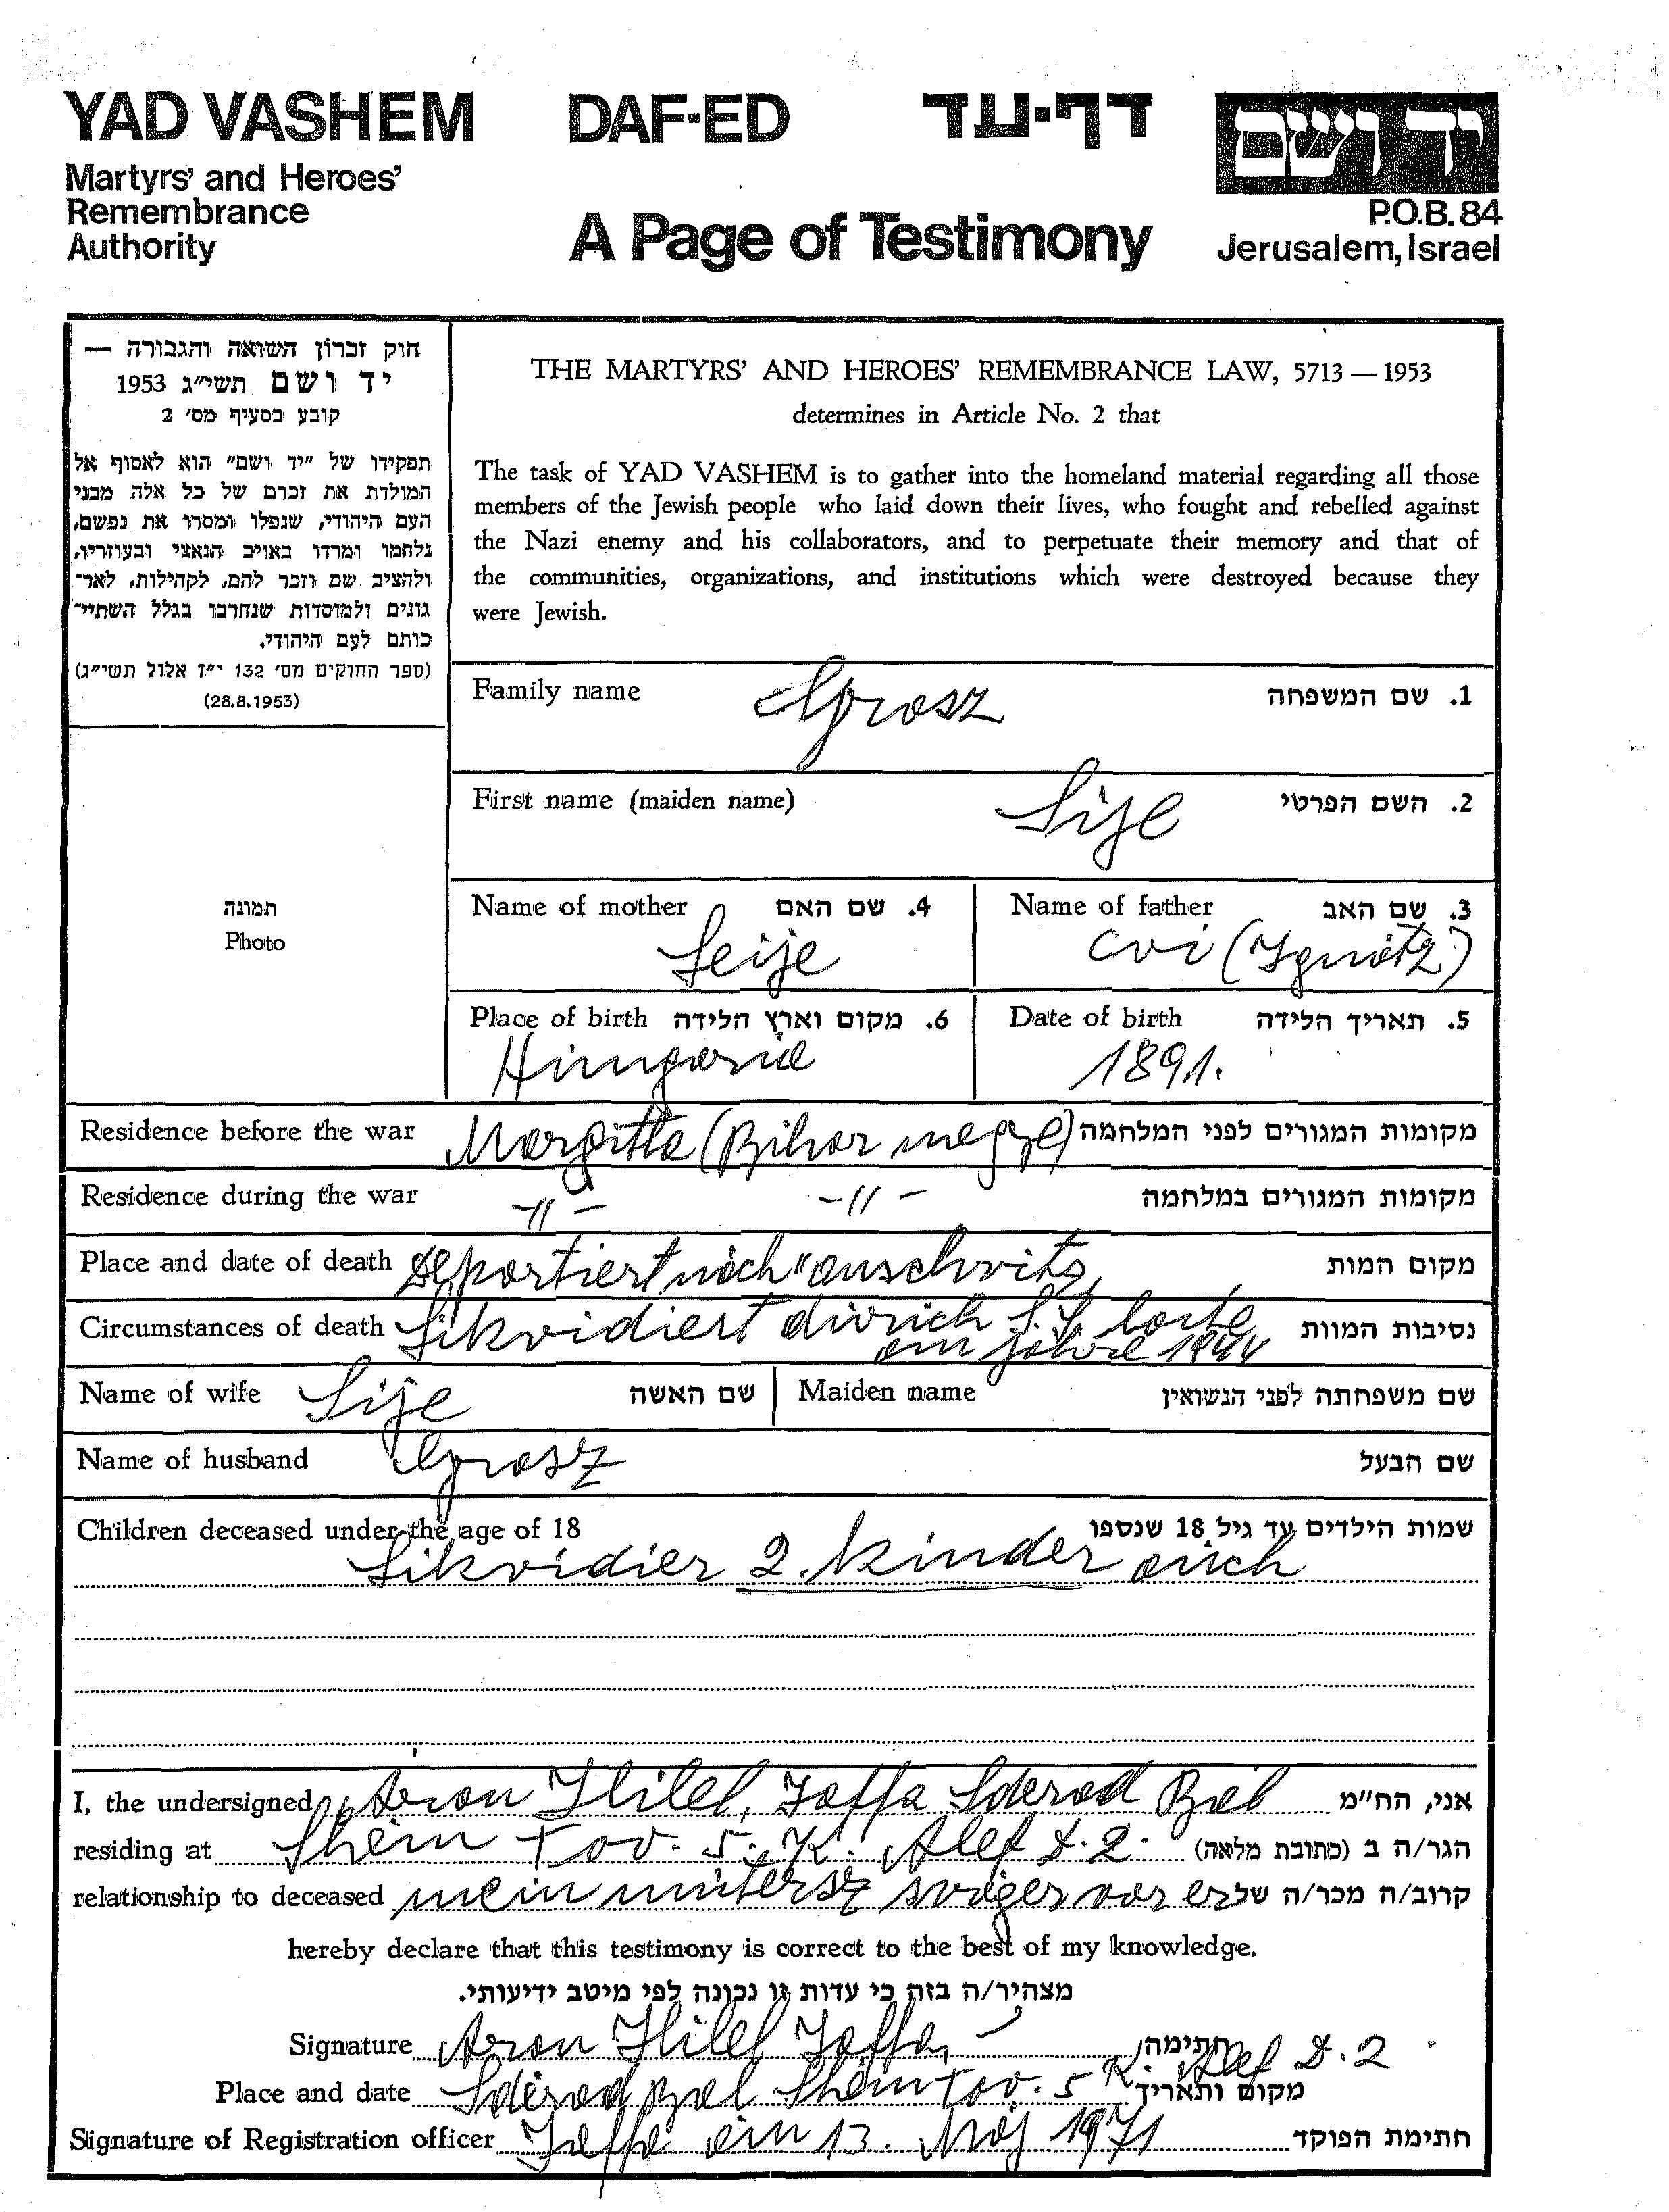 YAD VASHEM DAF-ED דף-עד יד ושם
Martyrs' and Heroes'
Remembrance
Authority
A Page of Testimony
P.O.B. 84
Jerusalem, Israel
חוק זכרון השואה והגבורה —
יד ושם תשי"ג 1953
קובע בסעיף מס' 2
תפקידו של "יד ושם" הוא לאסוף אל
המולדת את זכרם של כל אלה מבני
העם היהודי, שנפלו ומסרו את נפשם,
נלחמו ומרדו באויב הנאצי ובעוזריו,
ולהציב שם וזכר להם, לקהילות, לאר־
גונים ולמוסדות שנחרבו בגלל השתיי־
כותם לעם היהודי.
(ספר החוקים מס' 132 י"ז אלול תשי"ג)
(28.8.1953)
תמונה
Photo
THE MARTYRS' AND HEROES' REMEMBRANCE LAW, 5713 — 1953
determines in Article No. 2 that
The task of YAD VASHEM is to gather into the homeland material regarding all those
members of the Jewish people who laid down their lives, who fought and rebelled against
the Nazi enemy and his collaborators, and to perpetuate their memory and that of
the communities, organizations, and institutions which were destroyed because they
were Jewish.
Family name Grosz 1. שם המשפחה
First name (maiden name) Lije 2. השם הפרטי
Name of mother 4. שם האם Name of father 3. שם האב
Leije Cvi (Ignátz)
Place of birth 6. מקום וארץ הלידה Date of birth 5. תאריך הלידה
Hungaria 1891.
Residence before the war Margitta (Bihar megye) מקומות המגורים לפני המלחמה
Residence during the war -//- -//- מקומות המגורים במלחמה
Place and date of death deportiert nach "auschvitz, מקום המות
Circumstances of death Likvidiert durch S.S. נסיבות המוות
am Jahre 1944
Name of wife Lije שם האשה Maiden name שם משפחתה לפני הנשואין
Name of husband Grosz שם הבעל
Children deceased under the age of 18 שמות הילדים עד גיל 18 שנספו
Likvidier 2. kinder auch
I, the undersigned Aron Hilel, Jaffa Sderod אני, הח"מ
residing at Shem Tov. 5. K. Alef D. 2. הגר/ה ב (כתובת מלאה)
relationship to deceased mein svoger var er קרוב/ה מכר/ה של
hereby declare that this testimony is correct to the best of my knowledge.
מצהיר/ה בזה כי עדות זו נכונה לפי מיטב ידיעותי.
Signature Aron Hilel Jaffa, חתימה
Place and date Sderod Shem Tov. 5 K. Alef D. 2 מקום ותאריך
Signature of Registration officer Jaffa am 13. Maj 1971 חתימת הפוקד